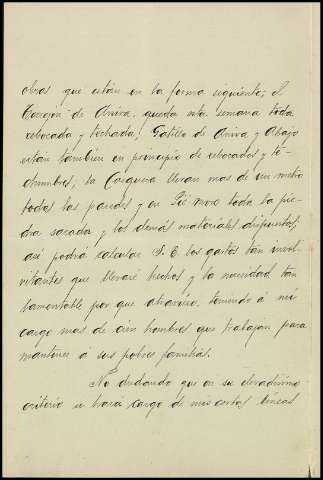 obras que están en la forma siguiente; El
Torreón de Arriba, queda esta semana toda
rebocada y techada; Gatillo de Arriva y Abajo
están tambien en principio de rebocados y te-
chumbres; la Carguera lleva mas de un metro
todas las paredes y en Pié moro toda la pie-
dra sacada y los demás materiales dispuestos,
así podrá calcular S. E. los gastos tan
que llevaré hechos y la necesidad tan
lamentable por que atravieso, teniendo á mi
cargo mas de cien hombres que trabajan para
mantener á sus pobres familias.
No dudando que en su elevadísimo
criterio se hará cargo de mis cortas líneas